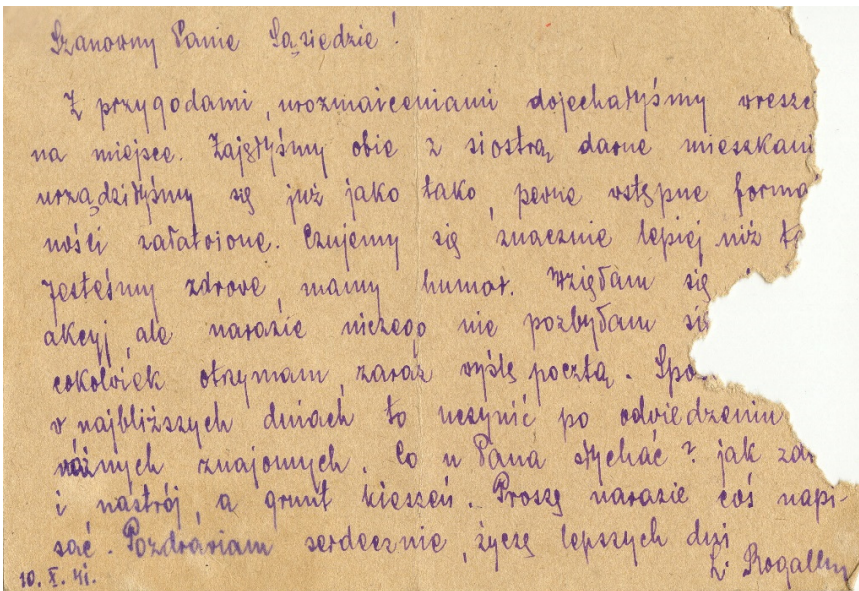 Szanowny Panie Sąsiedzie!
Z przygodami, urozmaiceniami dojechałyśmy wreszc
na miejsce. Zajęłyśmy obie z siostrą dawne mieszkani
urządziłyśmy się już jako tako, pewne wstępne forma
ności załatwione. Czujemy się znacznie lepiej niż
Jesteśmy zdrowe, mamy humor. Wzięłam się
akcyj, ale narazie niczego nie pozbyłam si
cokolwiek otrzymam, zaraz wyślę pocztą. Spo
w najbliższych dniach to uczynić po odwiedzeniu
różnych znajomych. Co u Pana słychać? jak zdr
i nastrój, a grunt kieszeń. Proszę narazie coś napi-
sać. Pozdrawiam serdecznie, życzę lepszych dni
10. X. 41.